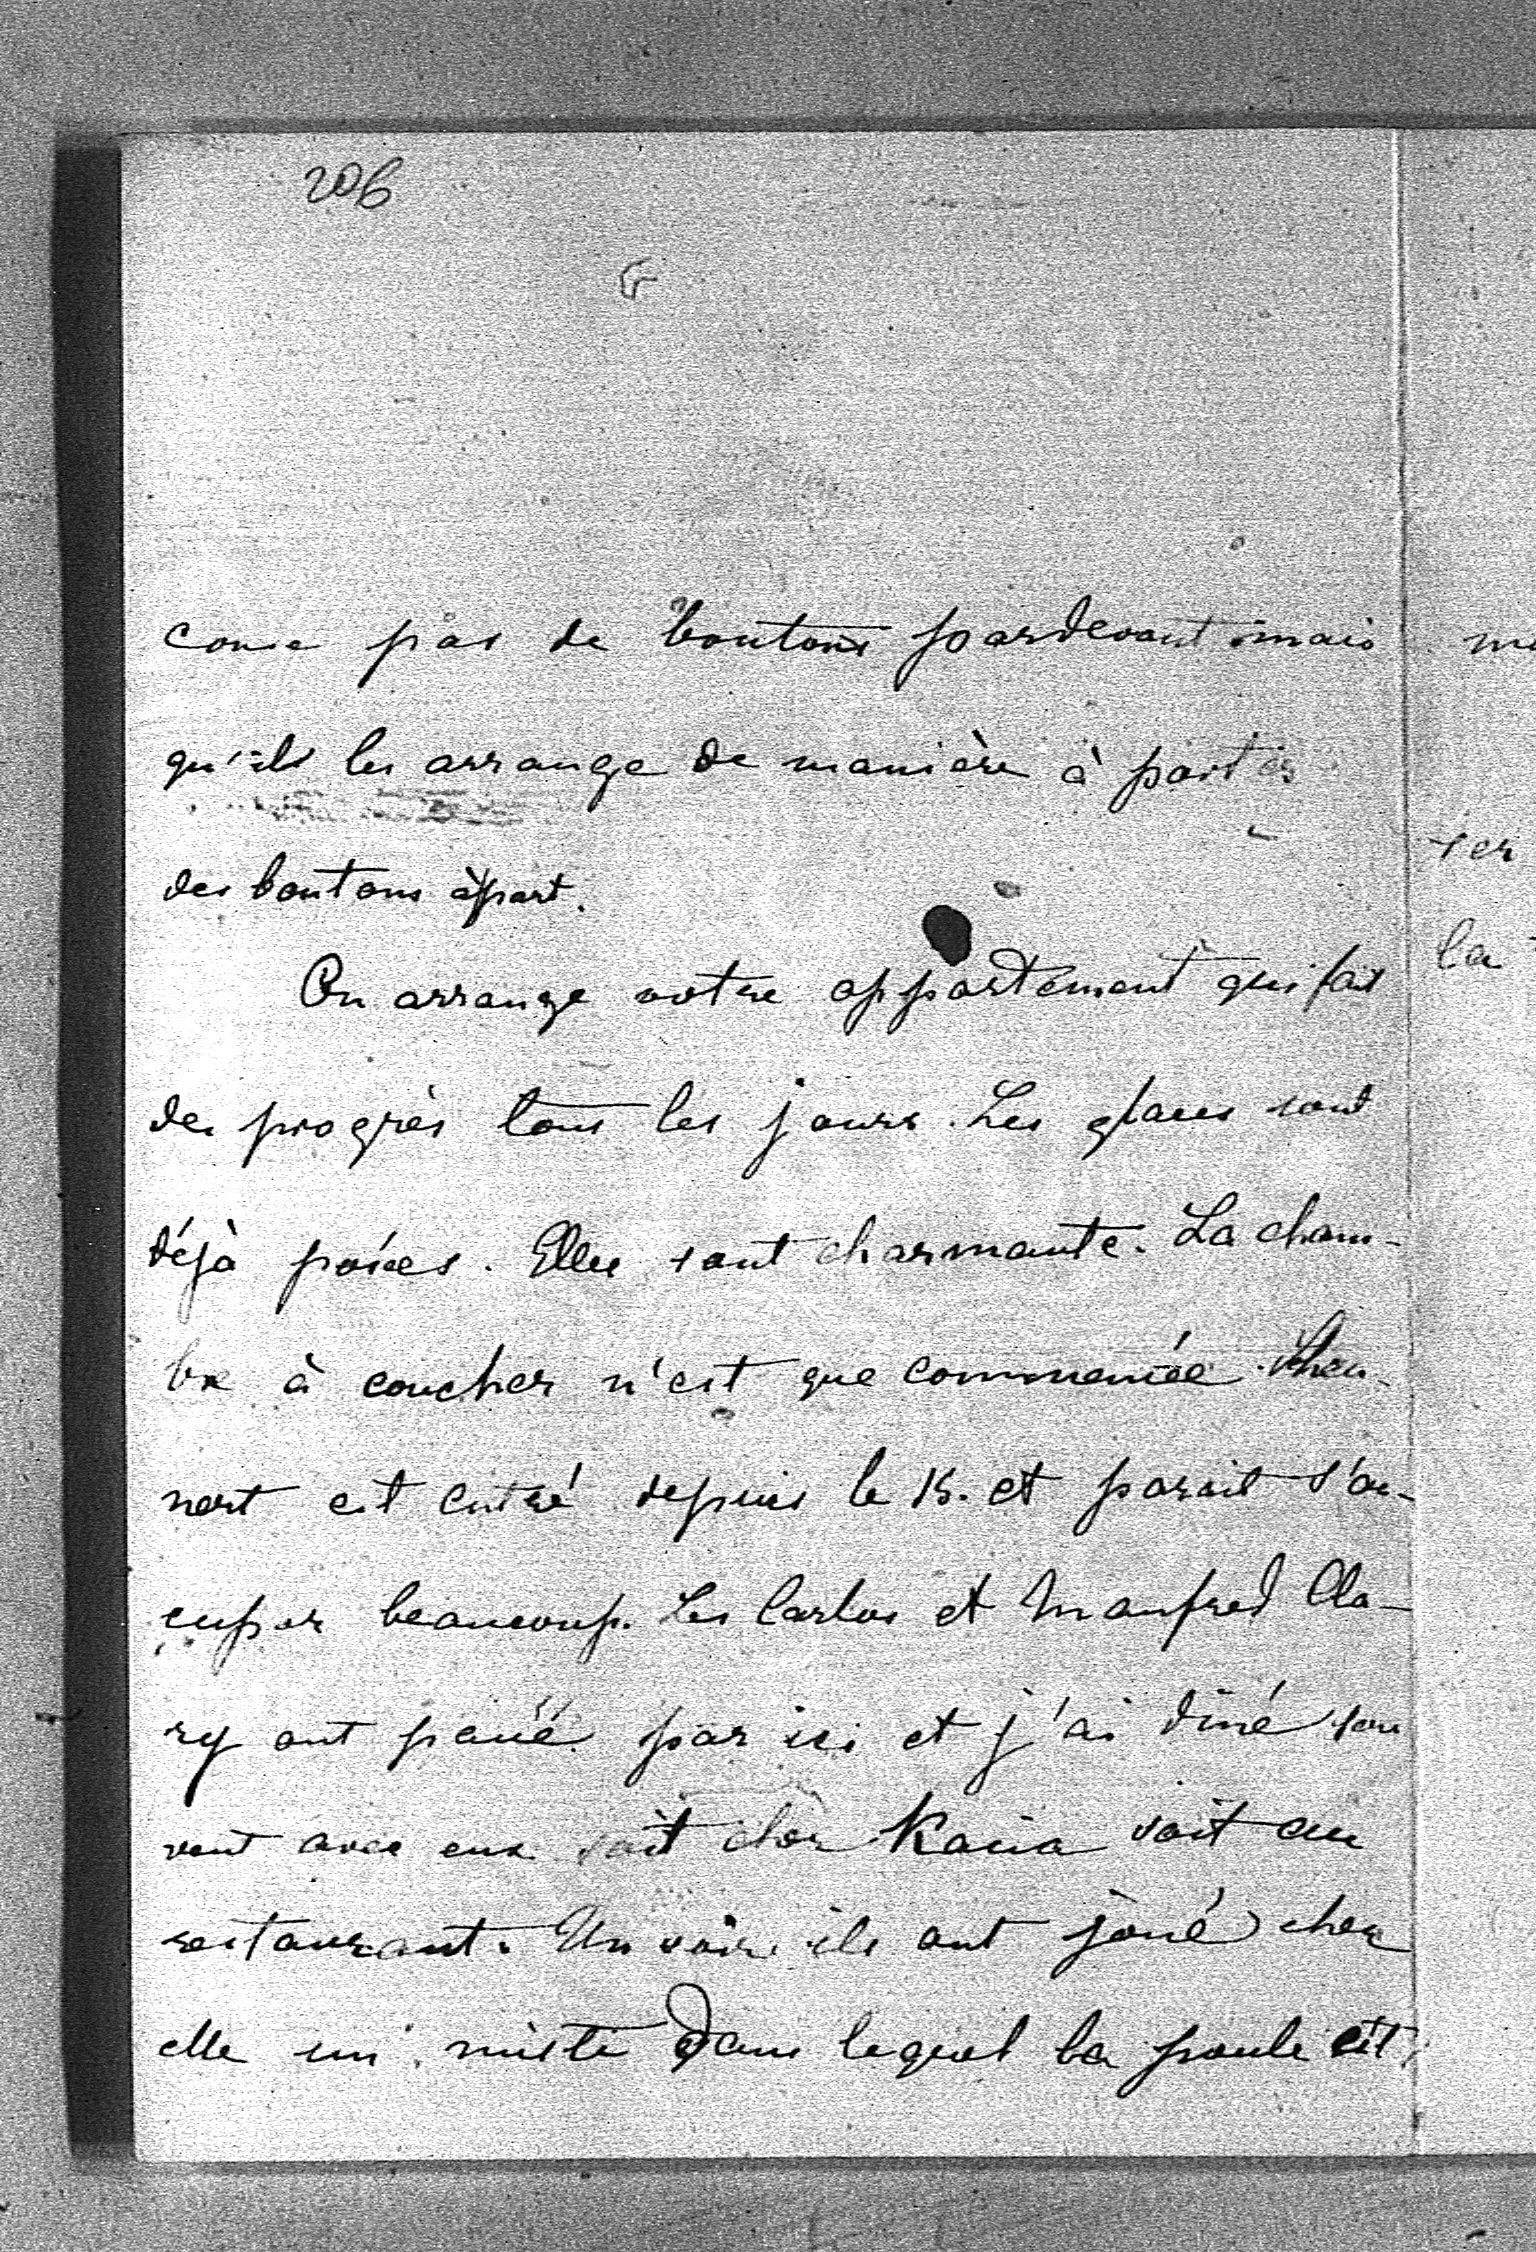 206
couse pas de boutons pardevant mais
qu'ils les arrange de manière à porter
des boutons àpart.
On arrange votre appartement qui fait
des progrès tous les jours. Les glaces sont
déjà posées. Elles sont charmante. La cham-
bre à coucher n'est que commencée.
nert est entré depuis le 15. et parait s'oc-
cuper beaucoup. Les Carlos et Manfred Cla-
ry ont passé par ici et j'ai diné sou
vent avec eux soit chez Kasia soit au
restaurant. Un soir ils ont joué chez
elle un misti dans lequel la poule est